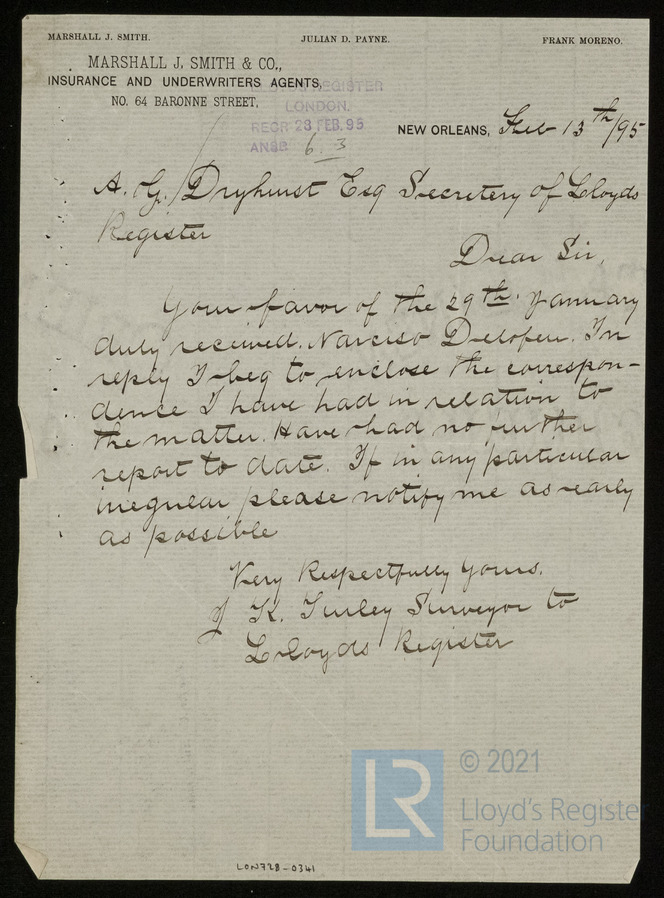 MARSHALL J. SMITH. JULIAN D. PAYNE. FRANK MORENO.
MARSHALL J. SMITH & CO.,
INSURANCE AND UNDERWRITERS AGENTS,
NO. 64 BARONNE STREET,
REGISTER
LONDON.
RECD 23 FEB. 95
ANSD 6 3
NEW ORLEANS, Feb 13th/95
A. G. Dryhurst Esq Secretery of Lloyds
Register
Dear Sir,
Your favor of the 29th. January
duly received. Narciso Deulofeu. In
reply I beg to enclose the correspon-
dence I have had in relation to
the matter. Have had no further
report to date. If in any particular
irregular please notify me as early
as possible
Very Respectfully Yours.
J K. Turley Surveyor to
Lloyds Register
© 2021
LR
Lloyd's Register
Foundation
LON728-0341